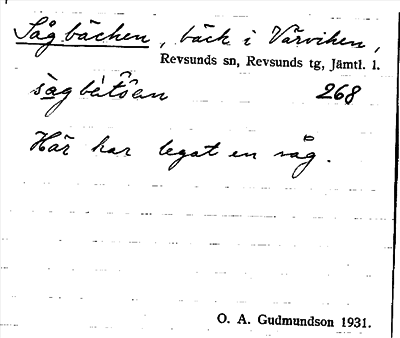 Sågbäcken, bäck i Vårviken,
Revsunds sn, Revsunds tg, Jämtl. l.
268
Här har legat en såg.
O. A. Gudmundson 1931.